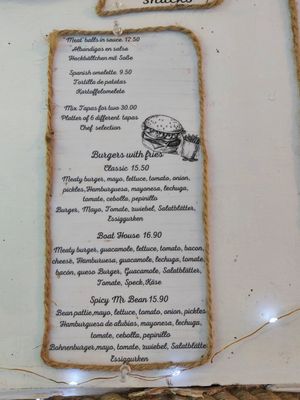 Snacks
Meat balls in sauce. 12.50
Albondigas en salsa
Hackbällchen mit Soße
Spanish omelette. 9.50
Tortilla de patatas
Kartoffelomelete
Mix Tapas for two 30.00
Platter of 6 different tapas
Chef selection
Burgers with fries
Classic 15.50
Meaty burger, mayo, lettuce, tomato, onion,
pickles, Hamburguesa, mayonesa, lechuga,
tomate, cebolla, pepinillo
Burger, Mayo, Tomate, zwiebel, Salatblätter,
Essiggurken
Boat House 16.90
Meaty burger, guacamole, lettuce, tomato, bacon,
cheese, Hamburuesa, guacamole, lechuga, tomate,
bacón, queso Burger, Guacamole, Salatblätter,
Tomate, Speck, Käse
Spicy Mr Bean 15.90
Bean pattie, mayo, lettuce, tomato, onion, pickles
Hamburguesa de alubias, mayonesa, lechuga,
tomate, cebolla, pepinillo
Bohnenburger, mayo, tomate, zwiebel, Salatblätte
Essiggurken